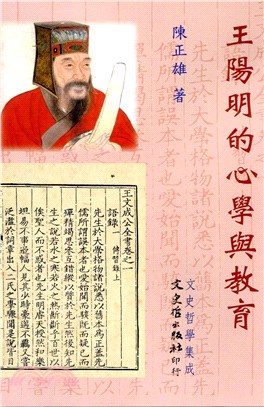 王陽明的心學與教育
陳正雄 著
文史哲學集成
文史哲出版社印行
王文成公全書卷之一
語錄一 傳習錄上
先生於大學格物諸說悉以舊本為正蓋先
儒所謂誤本者也愛始聞而駭既而疑已而
殫精竭思參互錯縱以質於先生然後知先
生之說若水之寒若火之熱斷斷乎百世以
俟聖人而不惑者也先生明睿天授然和樂
坦易不事邊幅人見其少時豪邁不羈又嘗
泛濫於詞章出入二氏之學驟聞是說皆目